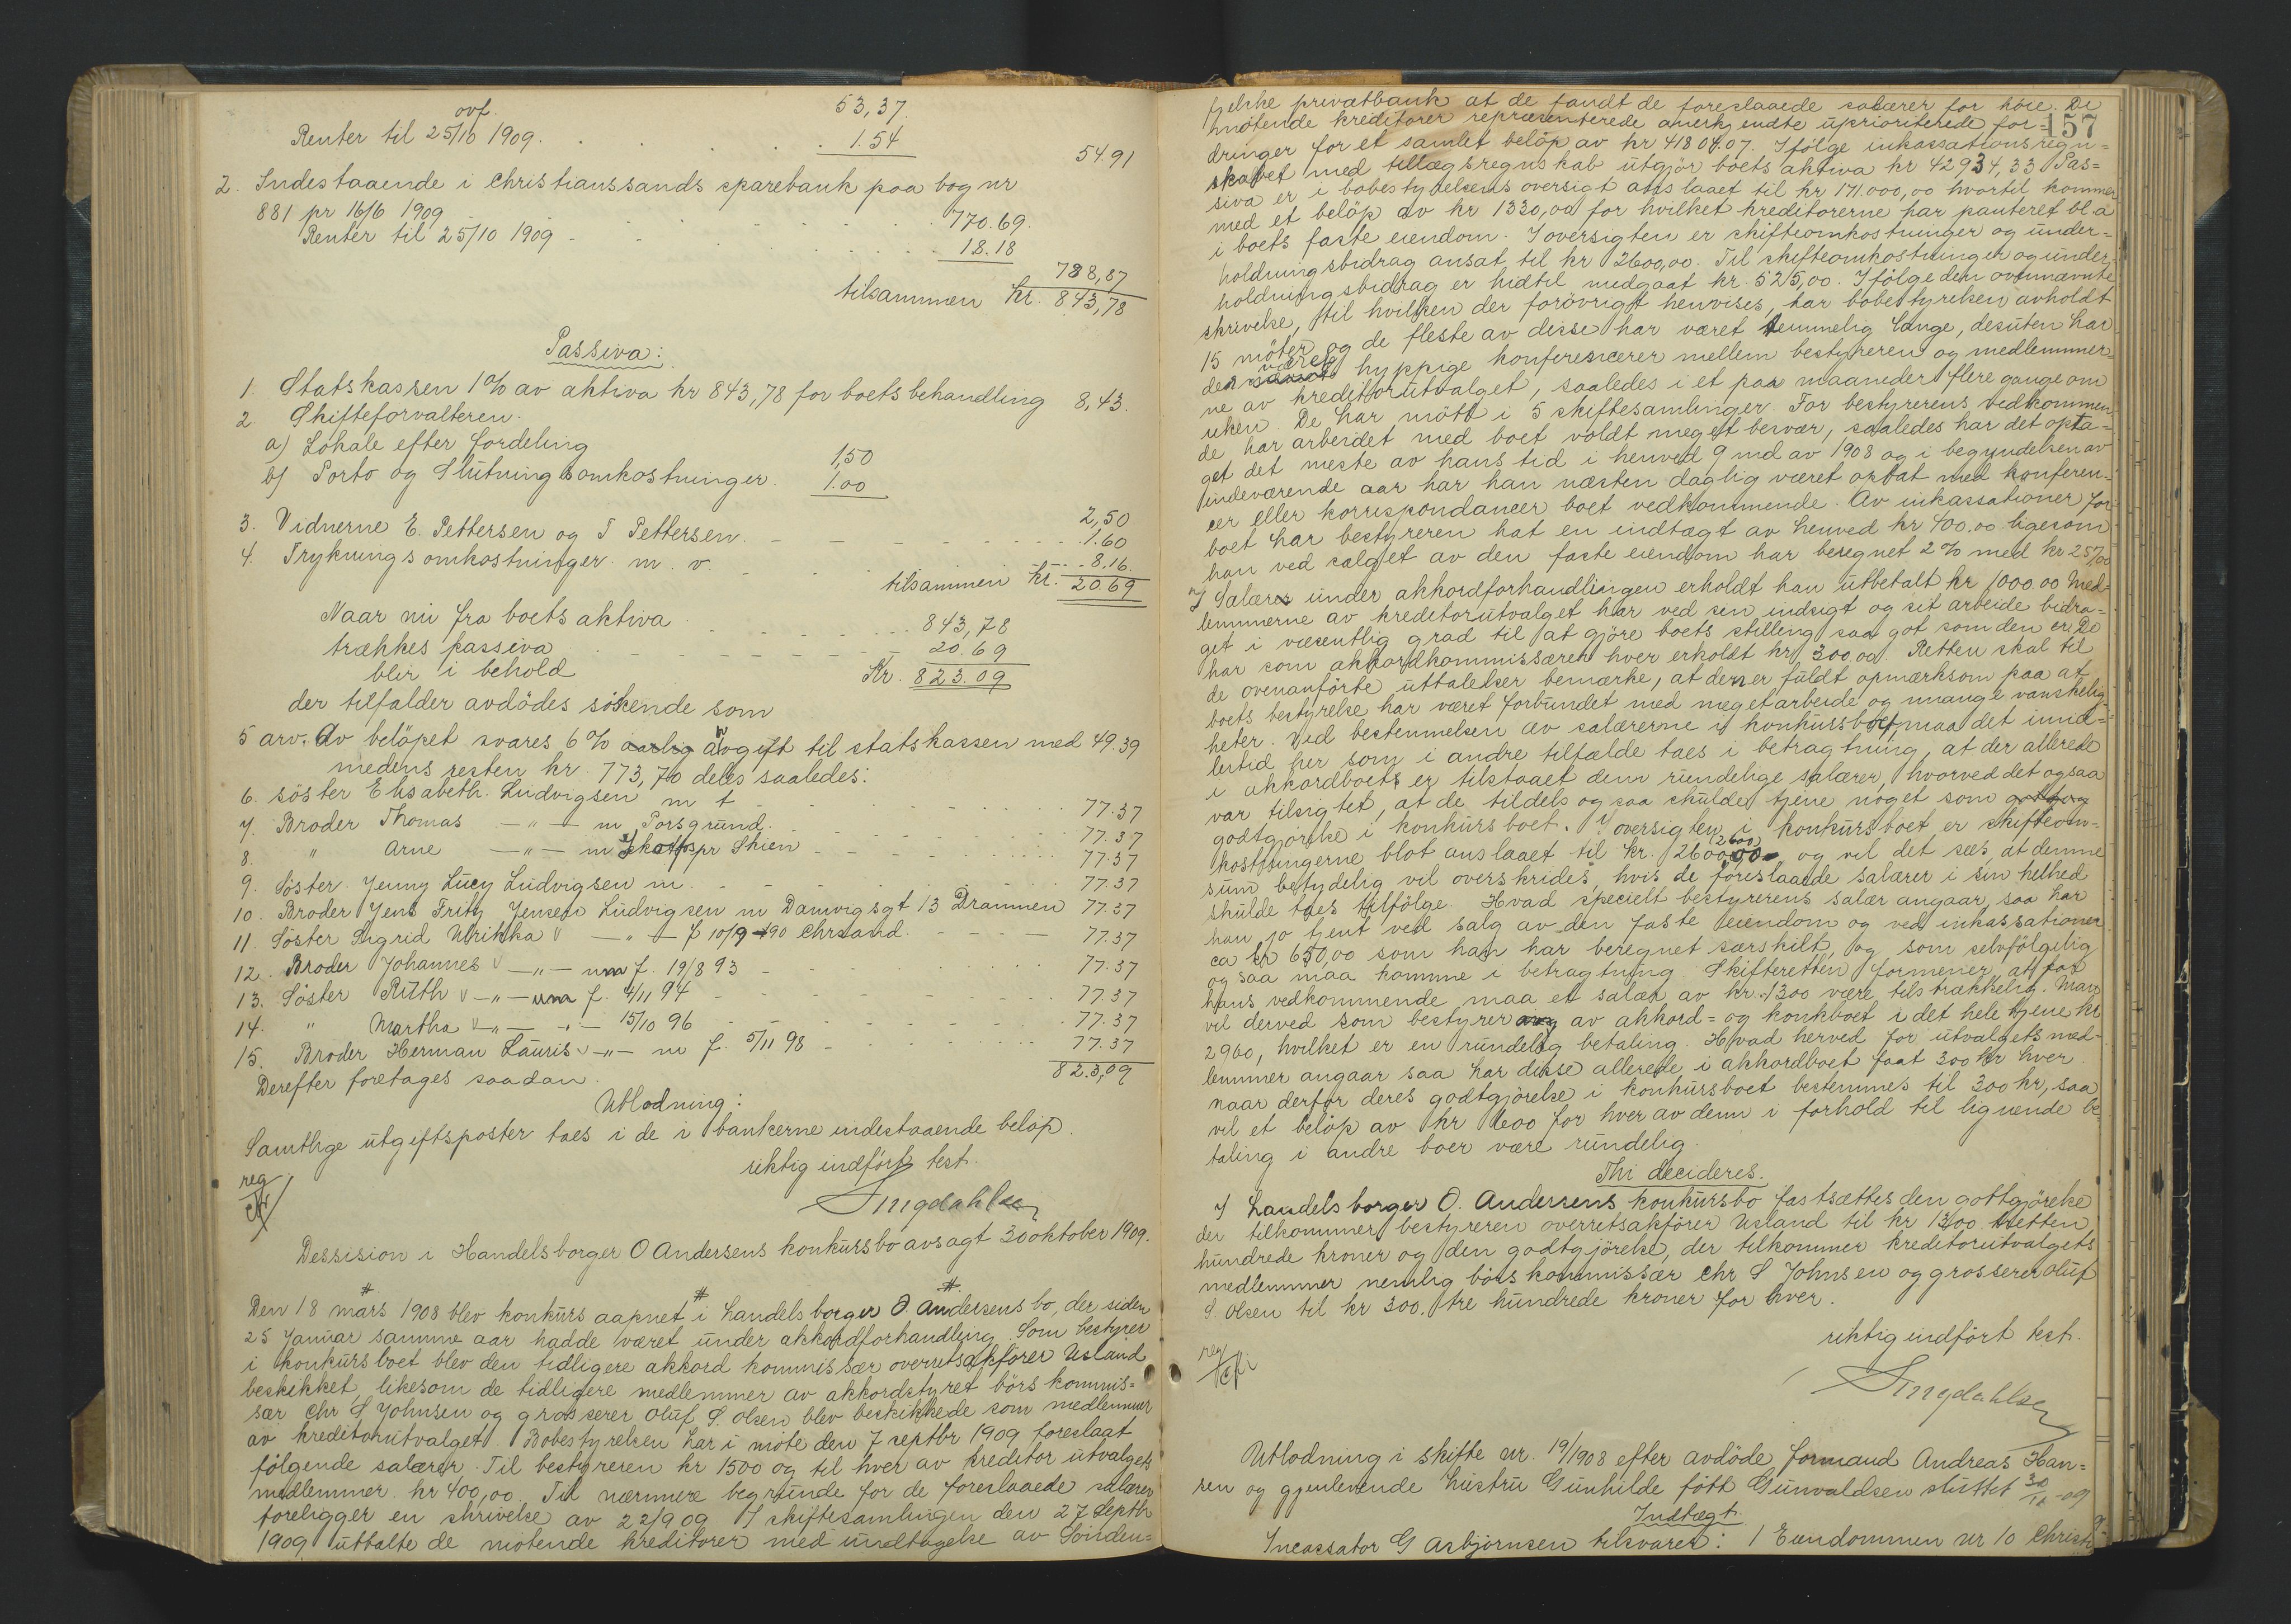 ovf. 53,37.
Renter til 25/10 1909. 1.54
54.91
2. Indestaaende i Christianssands sparebank paa bog nr
881 pr 16/6 1909 770.69.
Renter til 25/10 1909 18.18
788,87
tilsammen Kr. 843,78
Passiva:
1. Statskassen 1% av aktiva kr 843,78 for boets behandling 8,43.
2 Skifteforvalteren.
a) Lokale efter fordeling 1,50
b) Porto og Slutningsomkostninger. 1.00
2,50
3. Vidnerne E. Pettersen og T Pettersen. 1.60
4. Trykningsomkostninger m. v. 8.16.
tilsammen Kr. 20.69
Naar nu fra boets aktiva 843,78
trækkes passiva 20.69
blir i behold Kr. 823.09
der tilfalder avdödes söskende som
5 arv. Av belöpet svares 6% aarlig avgift til statskassen med 49.39
medens resten kr. 773,70 deles saaledes:
6. söster Elisabeth Ludvigsen m t 77.37
7. Broder Thomas —"— m Porsgrund. 77.37
8. " Arne —"— m pr Skien 77.37
9. Söster Jenny Lucy Ludvigsen m. 77.37
10. Broder Jens Fritz Jensen Ludvigsen m Damvigsgt 13 Drammen 77.37
11. Söster Sigrid Ulrikka —"— f 10/9 -90 Chrsand. 77.37
12. Broder Johannes —"— um f. 19/8 93 77.37
13. Söster Ruth —"— um f. 4/11 94 77.37
14. " Martha —"— —"— 15/10 96 77.37
15. Broder Herman Lauris —"— m f. 5/11 98 77.37
823,09
Derefter foretages saadan
Utlodning:
Samtlige utgiftsposter taes i de i bankerne indestaaende belöp.
riktig indfört test.
reg
Singdahlsen
Dessision i Handelsborger O Andersens konkursbo avsagt 30 oktober 1909.
Den 18 mars 1908 blev konkurs aapnet i handelsborger O. Andersens bo, der siden
25 Januar samme aar hadde været under akkordforhandling. Som bestyrer
i konkursboet blev den tidligere akkord kommissær overretsakförer Usland
beskikket, likesom de tidligere medlemmer av akkordstyret börs kommis=
sær Chr S Johnsen og grosserer Oluf S. Olsen blev beskikkede som medlemmer
av kreditorutvalget. Bobestyrelsen har i möte den 7 septbr 1909 foreslaat
fölgende salærer. Til bestyreren kr 1500 og til hver av kreditor utvalgets
medlemmer kr 400,00. Til nærmere begrunde for de foreslaaede salærer
foreligger en skrivelse av 22/9 09. I skiftesamlingen den 27 Septbr
1909 uttalte de mötende kreditorer med undtagelse av Sönden=
157
fjelske privatbank at de fandt de foreslaaede salærer for höie. De
mötende kreditorer repræsenterede anerkjendte uprioriterede for=
dringer for et samlet belöp av kr 41804.07. Ifölge inkassationsregn=
skabet med tillægsregnskab utgjör boets aktiva kr 42934,33 Pas=
siva er i bobestyrelsens oversigt anslaaet til kr 171.000,00 hvortil kommer
med et belöp av kr 1330,00 for hvilket kreditorerne har panteret bl.a
i boets faste eiendom. I oversigten er skifteomkostninger og under=
holdningsbidrag ansat til kr 2600,00. Til skifteomkostninger og under=
holdningsbidrag er hidtil medgaat kr. 525,00. Ifölge den ovennævnte
skrivelse, til hvilken der forövrigt henvises, har bobestyrelsen avholdt
15 möter og de fleste av disse har været temmelig lange, desuten har
der været hyppige konferencer mellem bestyreren og medlemmer=
ne av kreditorutvalget, saaledes i et par maaneder flere gange om
uken. De har mött i 5 skiftesamlinger. For bestyrerens vedkommen
de har arbeidet med boet voldt meget besvær, saaledes har det opta=
get det meste av hans tid i henved 9 md av 1908 og i begyndelsen av
indeværende aar har han næsten daglig været optat med konferen=
cer eller korrespondancer boet vedkommende. Av inkassationer for
boet har bestyreren hat en indtægt av henved kr 400.00 ligesom
han ved salget av den faste eiendom har beregnet 2% med kr 257,00
I Salærer under akkordforhandlingen erholdt han utbetalt kr 1000.00 Med=
lemmerne av kreditorutvalget har ved sin indsigt og sit arbeide bidra=
get i væsentlig grad til at gjöre boets stilling saa got som den er. De
har som akkordkommissærer hver erholdt kr 300,00. Retten skal til
de ovenanförte uttalelser bemærke, at den er fuldt opmærksom paa at
boets bestyrelse har været forbundet med meget arbeide og mange vanskelig=
heter. Ved bestemmelsen av salærerne i konkursboet maa det imid=
lertid her som i andre tilfælde taes i betragtning, at der allerede
i akkordboet er tilstaaet dem rundelige salærer, hvorved det ogsaa
var tilsigtet, at de tildels ogsaa skulde tjene noget som
godtgjörelse i konkursboet. I oversigten i konkursboet er skifteom=
kostningerne blot anslaaet til kr. 2600,00 (2600) og vil det sees at denne
sum betydelig vil overskrides, hvis de foreslaaede salærer i sin helhed
skulde taes tilfölge. Hvad specielt bestyrerens salær angaar, saa har
han jo tjent ved salg av den faste eiendom og ved inkassationer
ca kr 650,00 som han har beregnet særskilt, og som selvfölgelig
ogsaa maa komme i betragtning. Skifteretten formener, at for
hans vedkommende maa et salær av kr. 1300 være tilstrækkelig. Man
vil derved som bestyrer av akkord= og konkboet i det hele tjene kr
2960, hvilket er en rundelig betaling. Hvad herved for utvalgets med=
lemmer angaar saa har disse allerede i akkordboet faat 300 kr hver
naar derfor deres godtgjörelse i konkursboet bestemmes til 300 kr, saa
vil et belöp av kr 600 for hver av dem i forhold til lignende be
taling i andre boer være rundelig.
Thi decideres.
I Handelsborger O. Andersens konkursbo fastsættes den gottgjörelse
der tilkommer bestyreren overretsakförer Usland til kr 1300. tretten
hundrede kroner og den godtgjörelse, der tilkommer kreditorutvalgets
medlemmer nemlig börskommissær Chr S Johnsen og grosserer Oluf
S. Olsen til kr 300. tre hundrede kroner for hver.
riktig indfört test.
reg
Singdahlsen
Utlodning i skifte nr. 19/1908 efter avdöde formand Andreas Han=
sen og gjenlevende hustru Gunhilde fött Gunvaldsen sluttet 30/10-09
Indtægt.
Incassator G Asbjörnsen tilsvarer: 1 Eiendommen nr 10 Christi